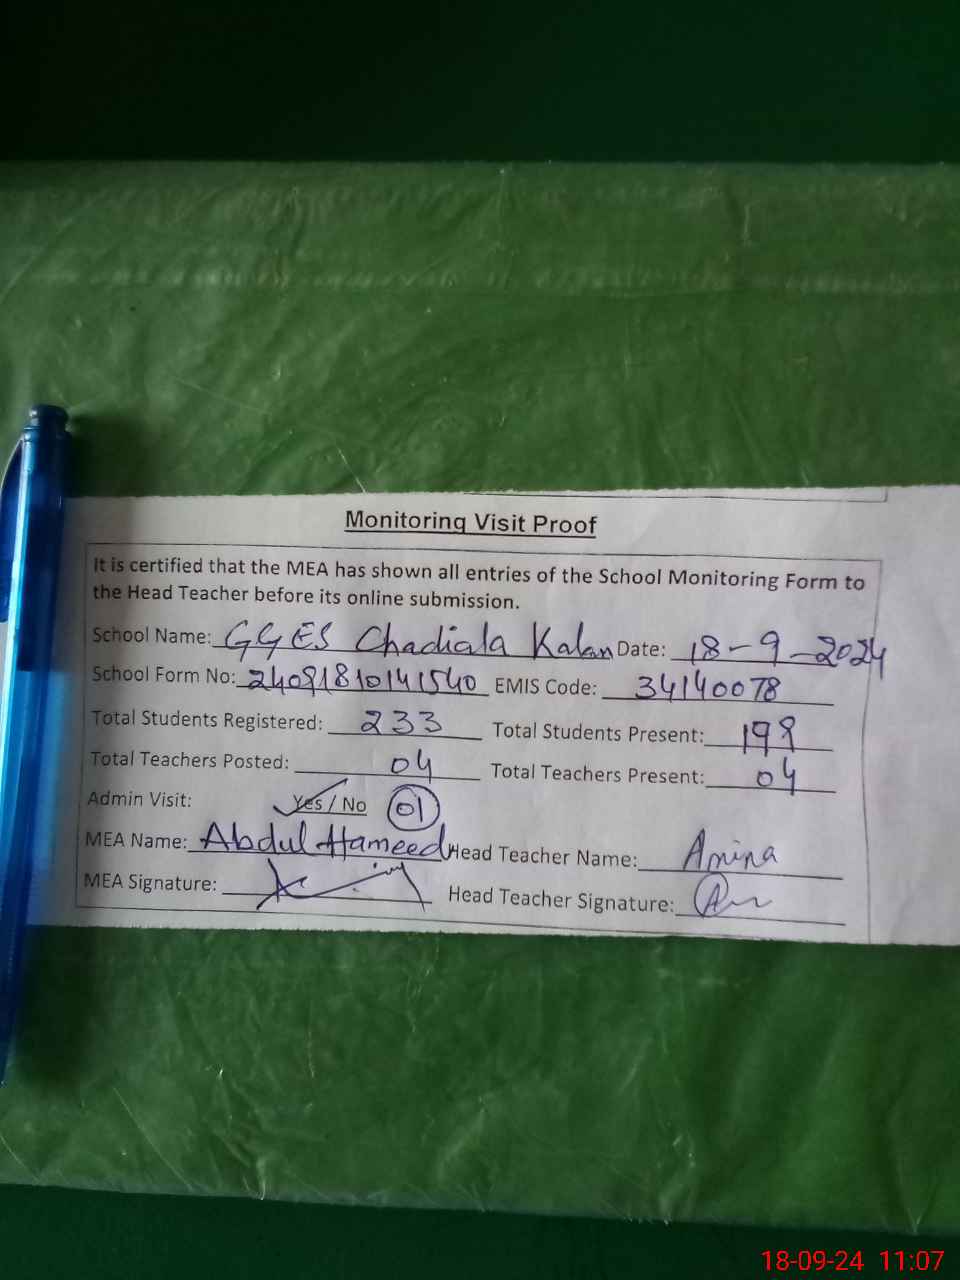 Monitoring Visit Proof
It is certified that the MEA has shown all entries of the School Monitoring Form to
the Head Teacher before its online submission.
School Name: GGES Chadiala Kalan Date: 18-9-2024
School Form No: 24091810141540 EMIS Code: 34140078
Total Students Registered: 233 Total Students Present: 198
Total Teachers Posted: 04 Total Teachers Present: 04
Admin Visit: Yes / No 01
MEA Name: Abdul Hameed Head Teacher Name: Amina
MEA Signature: Head Teacher Signature:
18-09-24 11:07